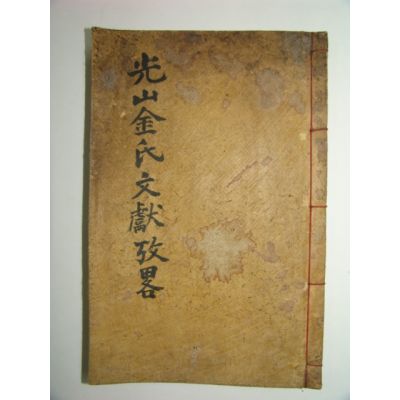 光山金氏文獻攷畧